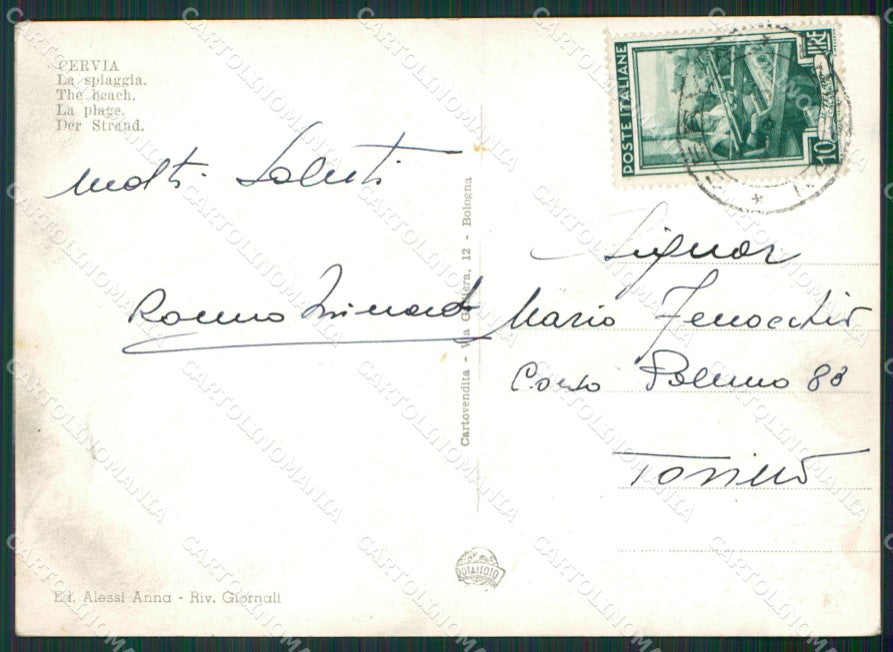 CERVIA
La spiaggia.
The beach.
La plage.
Der Strand.
Molti Saluti
Romno
Cartovendita - Via Galliera, 12 - Bologna
POSTE ITALIANE
LIRE
10
Signor
Mario Fenocchio
Corso Palermo 88
Torino
TOTALFOTO
Ed. Alessi Anna - Riv. Giornali
CARTOLINOMANIA